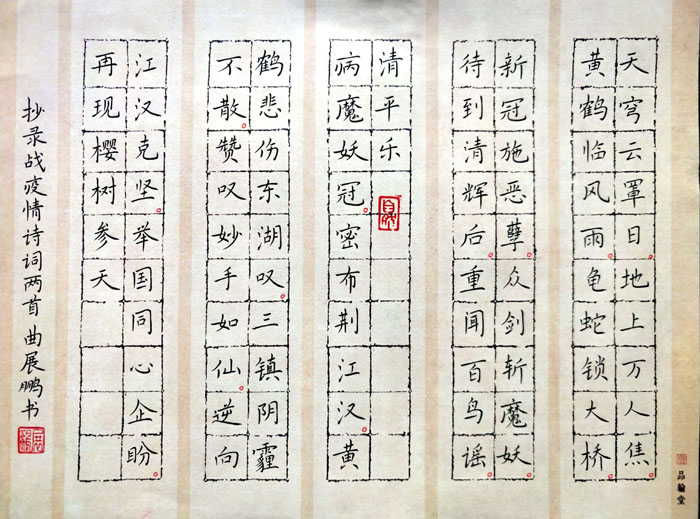 天穹云罩日。地上万人焦。
黄鹤临风雨。龟蛇锁大桥。
新冠施恶孽。众剑斩魔妖。
待到清辉后。重闻百鸟谣。
清平乐
病魔妖冠。密布荆江汉。黄
鹤悲伤东湖叹。三镇阴霾
不散。赞叹妙手如仙。逆向
江汉克坚。举国同心企盼。
再现樱树参天
抄录战疫情诗词两首 曲展鹏书
品翰堂